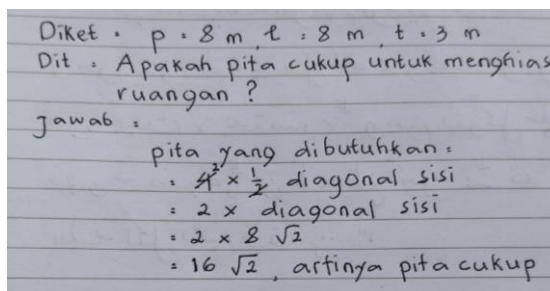 Diket : p = 8 m, l = 8 m, t = 3 m
Dit : Apakah pita cukup untuk menghias
ruangan ?
Jawab :
pita yang dibutuhkan :
= 4² × 1/2 diagonal sisi
= 2 × diagonal sisi
= 2 × 8 √2
= 16 √2, artinya pita cukup